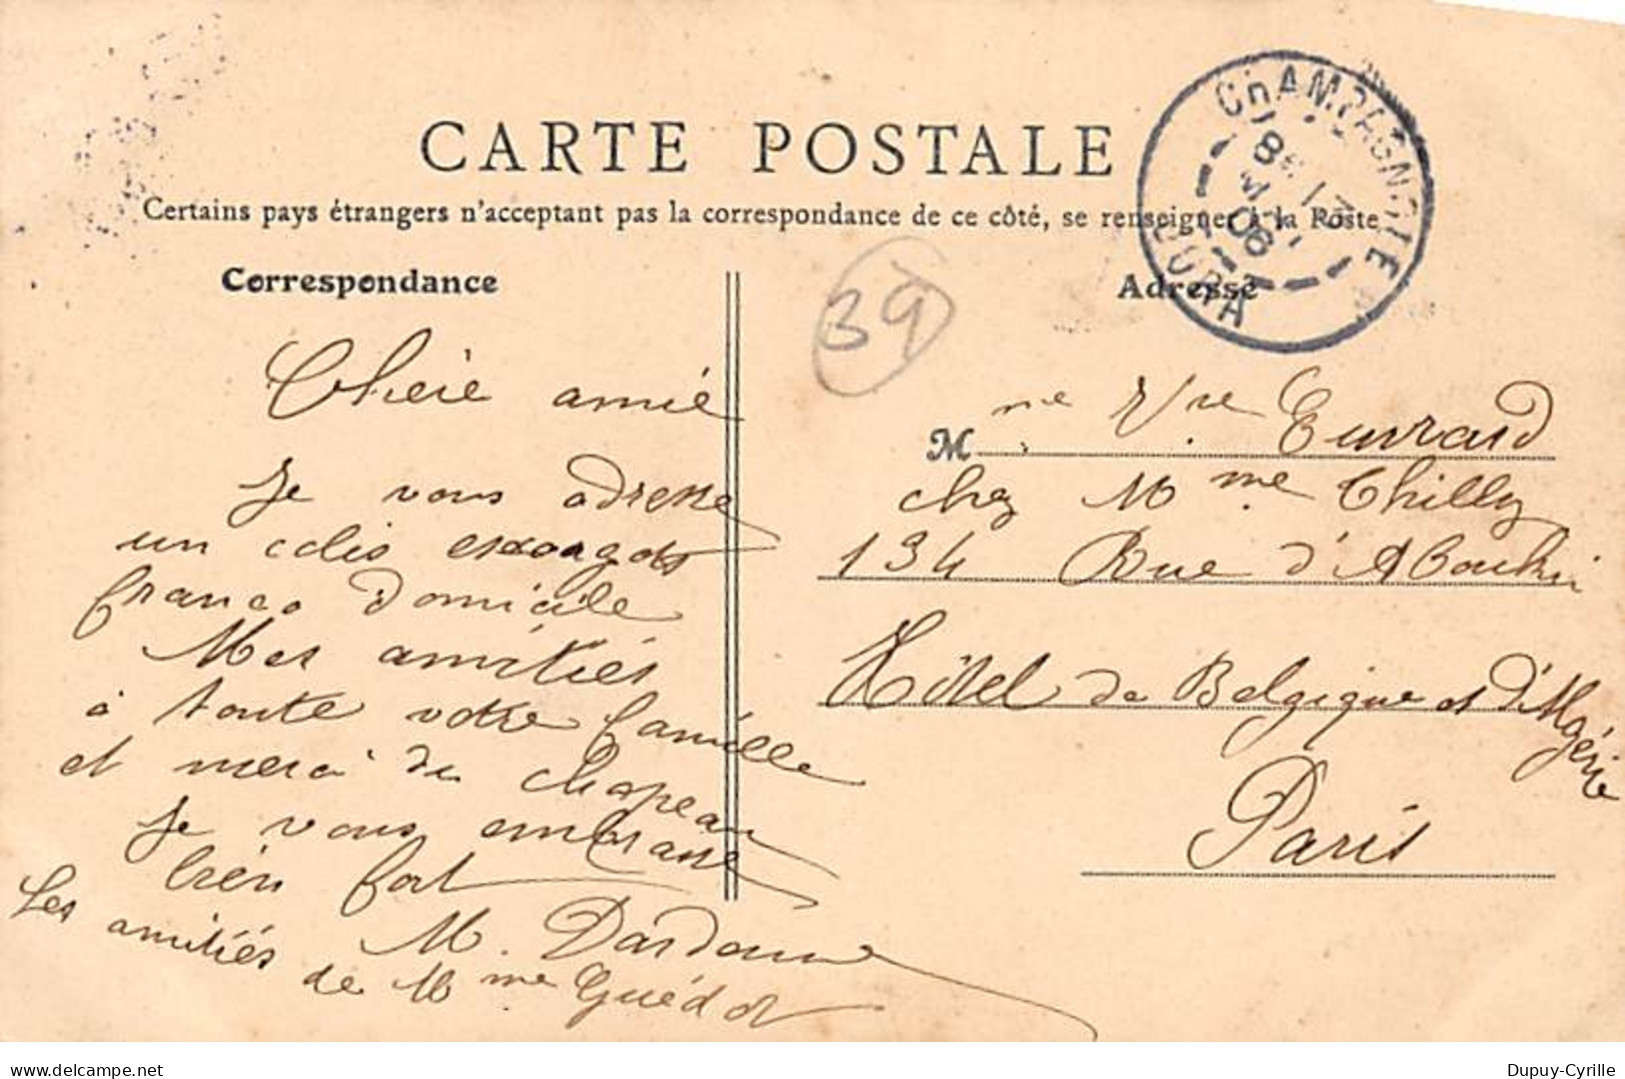 CARTE POSTALE
Certains pays étrangers n'acceptent pas la correspondance de ce côté, se renseigner à la Poste
CHAMPAGNOLE
JURA
06
Correspondance
Adresse
39
Chère amie
Je vous adresse
un colis escargots
franco domicile
Mes amitiés
à toute votre famille
et merci du chapeau
Je vous embrasse
bien fort
M.
Les amitiés de Mme Guédot
Mme Vve Euvrard
chez Mme Thilly
134 Rue d'Aboukir
Hôtel de Belgique et d'Algérie
Paris
www.delcampe.net
Dupuy-Cyrille